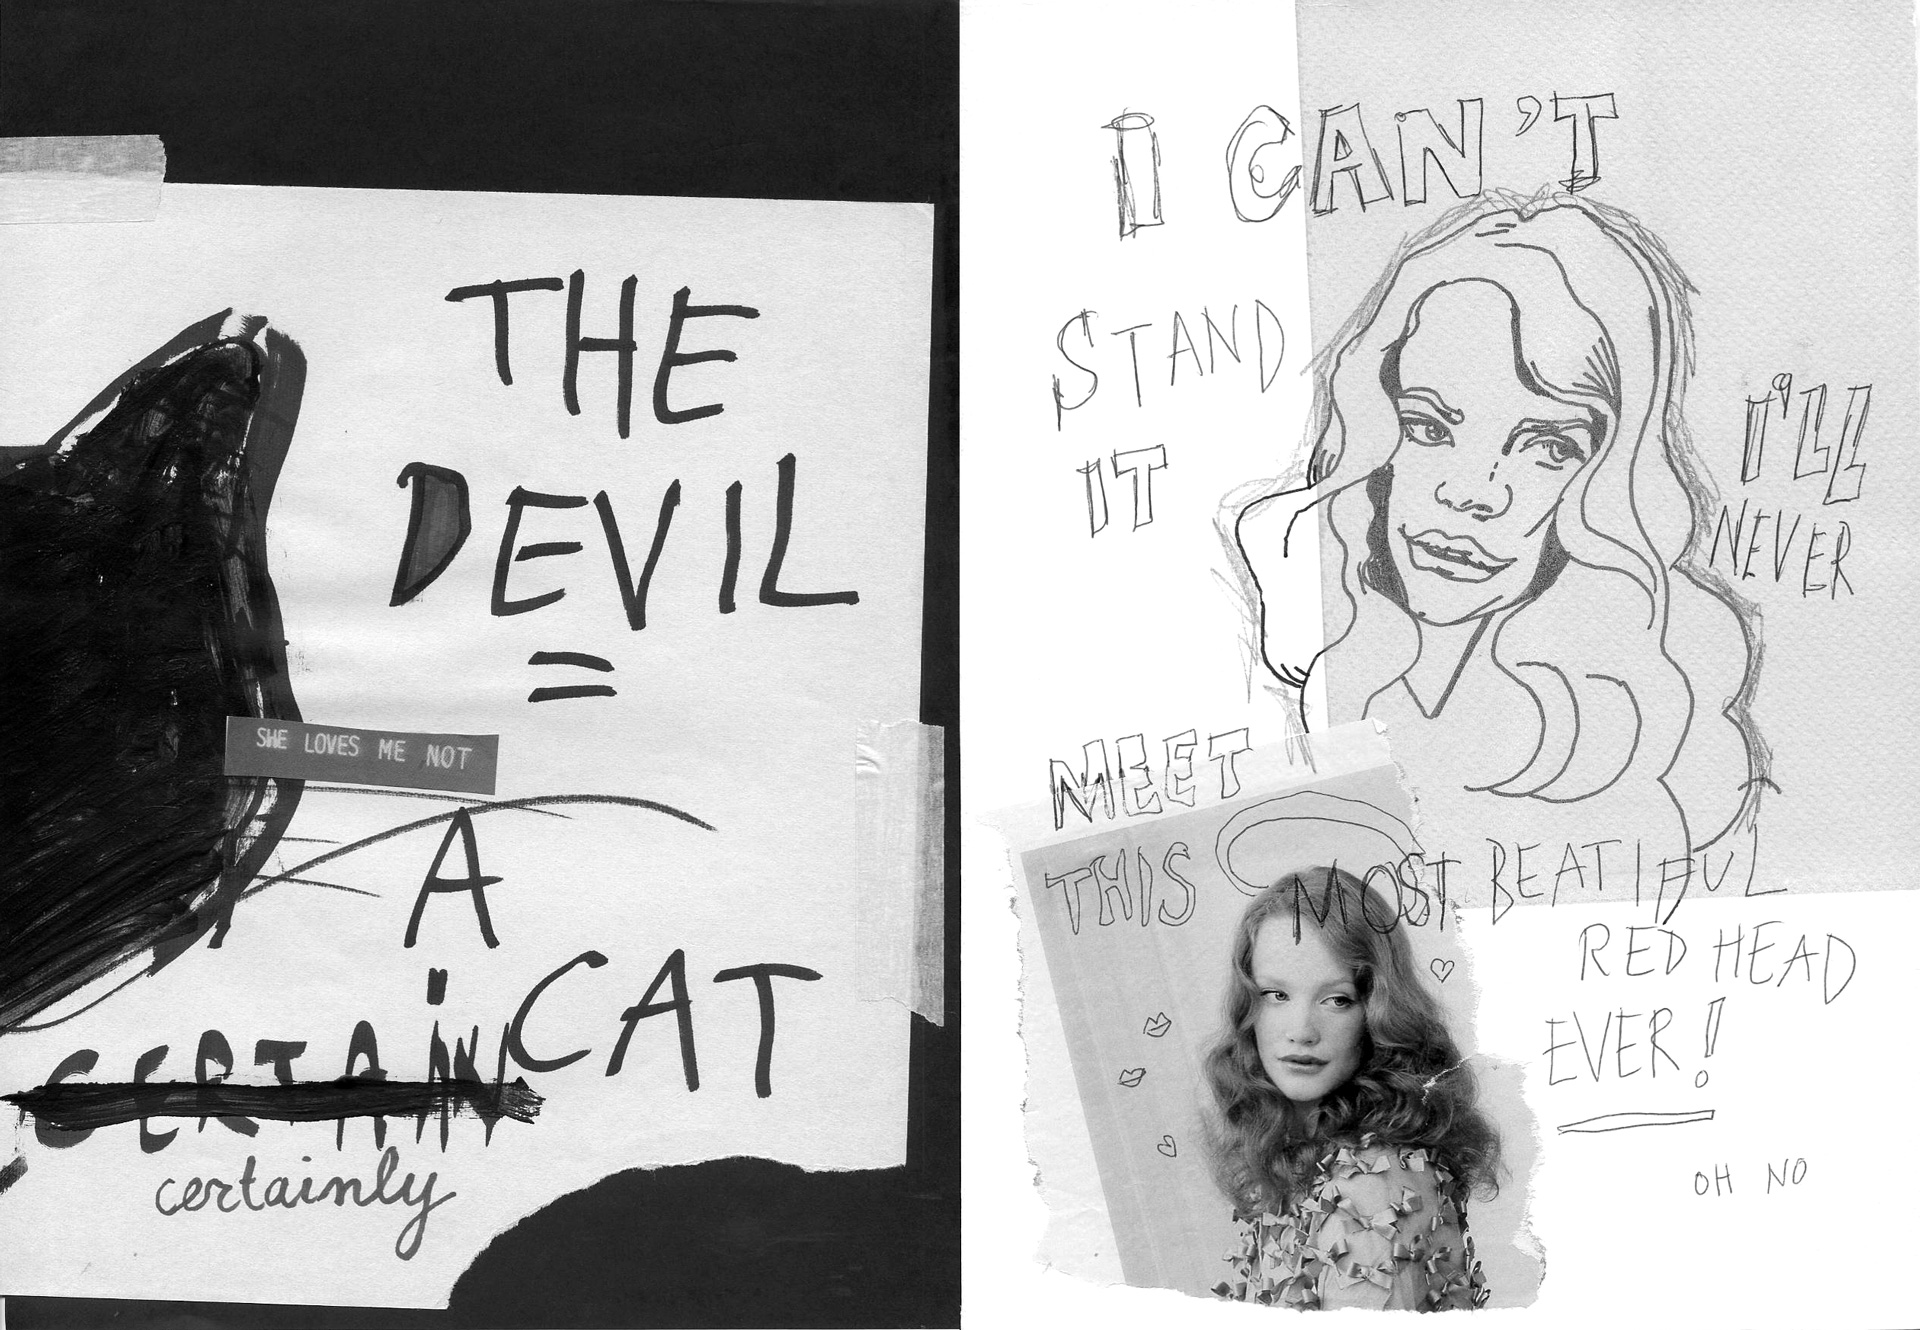 THE
DEVIL
=
SHE LOVES ME NOT
A
CAT
CERTAIN
certainly
I CAN'T
STAND
IT
I'LL
NEVER
MEET
THIS MOST BEATIFUL
RED HEAD
EVER!
OH NO